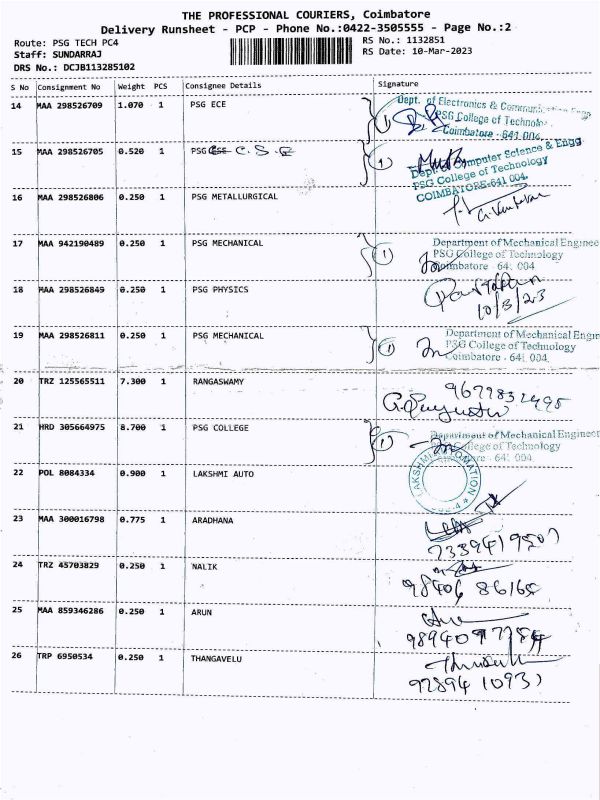 THE PROFESSIONAL COURIERS, Coimbatore
Delivery Runsheet - PCP - Phone No.:0422-3505555 - Page No.:2
Route: PSG TECH PC4
Staff: SUNDARRAJ
DRS No.: DCJB113285102
RS No.: 1132851
RS Date: 10-Mar-2023
S No Consignment No Weight PCS Consignee Details Signature
14 MAA 298526709 1.070 1 PSG ECE
1
Dept. of Electronics &
PSG College of
Coimbatore - 641 004.
15 MAA 298526705 0.520 1 PSG CSE C.S.E
1
Dept. of Computer Science & Engg
PSG College of Technology
COIMBATORE-641 004.
16 MAA 298526806 0.250 1 PSG METALLURGICAL
17 MAA 942190489 0.250 1 PSG MECHANICAL
1
Department of Mechanical Enginee
PSG College of Technology
Coimbatore - 641 004
18 MAA 298526849 0.250 1 PSG PHYSICS
10/3/23
19 MAA 298526811 0.250 1 PSG MECHANICAL
1
Department of Mechanical Engine
PSG College of Technology
Coimbatore - 641 004.
20 TRZ 125565511 7.300 1 RANGASWAMY
21 HRD 305664975 8.700 1 PSG COLLEGE
1
Department of Mechanical Engineeri
College of Technology
641 004.
22 POL 8084334 0.900 1 LAKSHMI AUTO
LAKSHMI
23 MAA 300016798 0.775 1 ARADHANA
24 TRZ 45703829 0.250 1 NALIK
98406 86165
25 MAA 859346286 0.250 1 ARUN
26 TRP 6950534 0.250 1 THANGAVELU